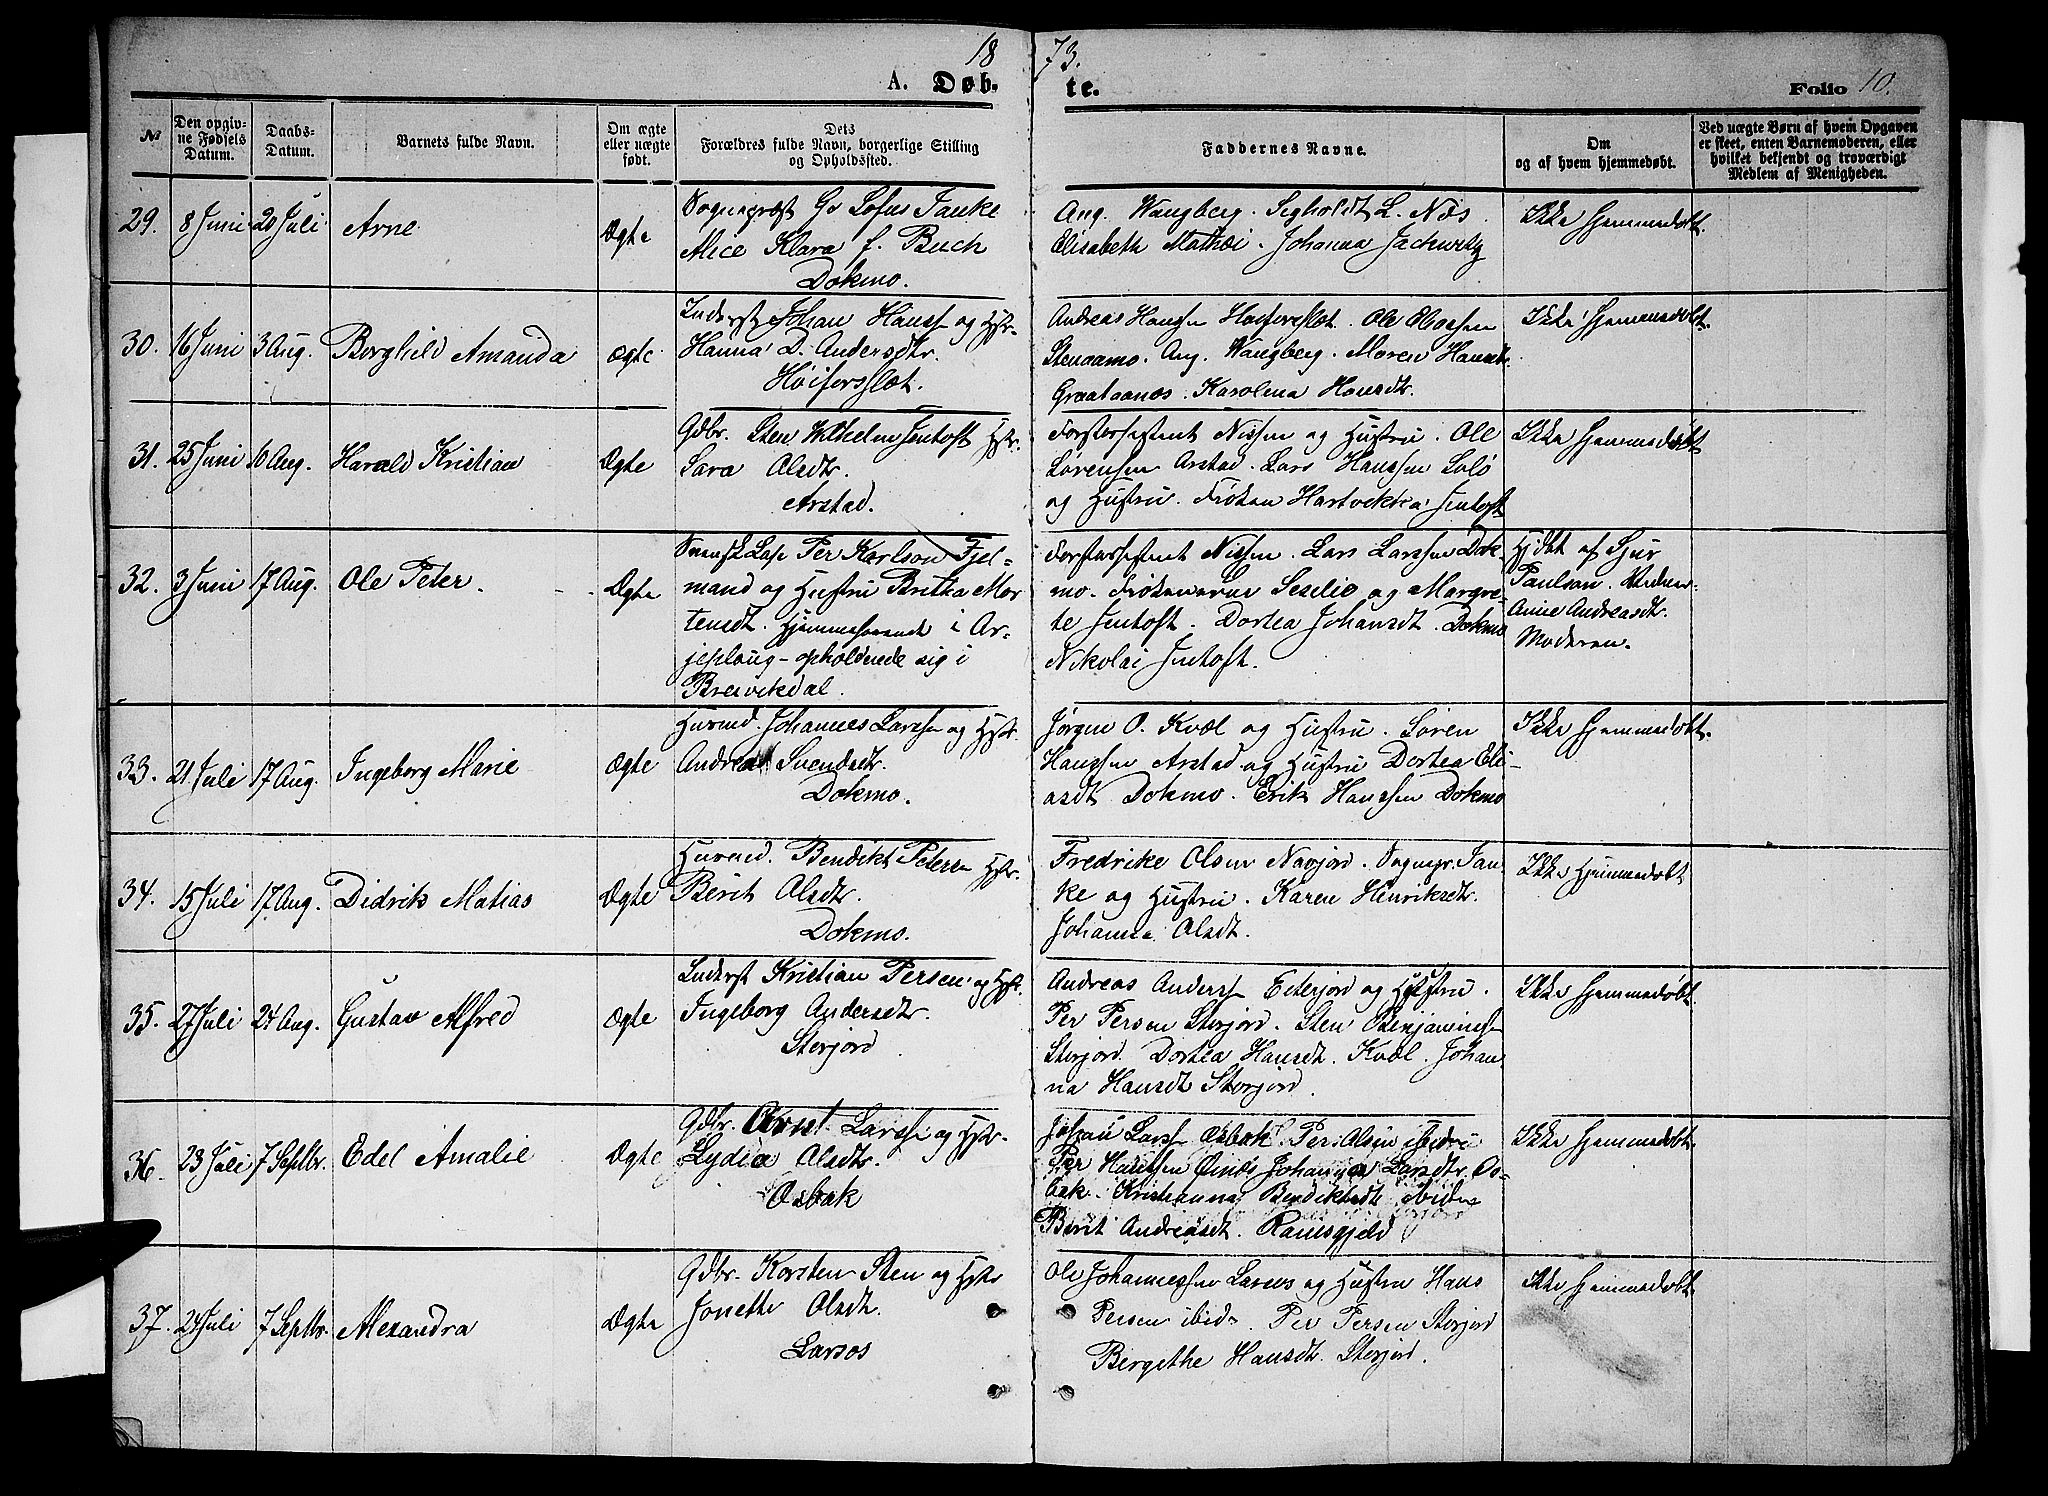 18 73.
A. Døb. te. Folio 10.
No
Den opgiv-
ne Fødsels
Datum.
Daabs-
Datum.
Barnets fulde Navn.
Om ægte
eller uægte
født.
Dets
Forældres fulde Navn, borgerlige Stilling
og Opholdssted.
Faddernes Navne.
Om
og af hvem hjemmedøbt.
Ved uægte Børn af hvem Opgaven
er skeet, enten Barnemoderen, eller
hvilket bekjendt og troværdigt
Medlem af Menigheden.
29. 8 Juni 20 Juli Arne Ægte
Sognepræst Lofus
Alice Klara f. Buch
Dokmo.
Aug. Wangberg. L. Næs
Elisabeth Johanna
Ikke hjemmedøbt.
30. 16 Juni 3 Aug. Borghild Amanda ægte
Inderst Johan Hanss. og Hstr.
Hanna D. Andersdtr.
Høiforslæt.
Andreas Hansen Høiforslæt. Ole Olassen
Stenaamo. Aug. Wangberg. Maren Hansdtr.
Graataanæs. Karolina Hansdtr.
Ikke hjemmedøbt.
31. 25 Juni 10 Aug. Harald Kristian Ægte
Gdbr. Sten Wilhelm Jentoft Hstr.
Sara Olsdtr.
Arstad.
Forstassistent Nissen og Hustru. Ole
Sørensen Arstad. Lars Hanssen Solø
og Hustru. Frøken Hartvikka Jentoft
Ikke hjemmedøbt
32. 3 Juni 17 Aug. Ole Peter. Ægte
Svensk Lap Per Karlson Fjel-
mand og Hustru Britha Mor
tensdt. Hjemmehørende i Ar-
jeplaug - opholdende sig i
Breivikdal.
Forstassistent Nissen. Lars Larssen Dok-
mo. Frøknerne Sesilie og Margre-
te Jentoft. Dortea Johansdt. Dokmo
Nikolai Jentoft.
Hjdbt af Sjur
Paulson.
Anne Andreasdt.
Moderen.
33. 21 Juli 17 Aug. Ingeborg Marie ægte
Husmd. Johannes Larssen og Hstr.
Andrea Svendsdtr.
Dokmo.
Jørgen O. Kvæl og Hustru. Søren
Hanssen Arstad og Hustru Dortea Eli-
asdt Dokmo. Erik Hanssen Dokmo
Ikke hjemmedøbt.
34. 15 Juli 17 Aug. Didrik Matias Ægte
Husmd. Bendikt Petersen Hstr.
Berit Olsdtr.
Dokmo.
Fredrike Olsen Navjord. Sognepr. Jan-
ke og Hustru. Karen Henriksdtr.
Johanna Olsdt.
Ikke hjemmedøbt
35. 27 Juli 24 Aug. Gustav Alfred ægte
Inderst Kristian Persen og Hstr.
Ingeborg Andersdtr.
Storjord
Andreas Anderss. Eiterjord og Hustru.
Per Persen Storjord. Sten Benjaminsen
Storjord. Dortea Hansdt. Kvæl. Johan
na Hansdt Storjord.
Ikke hjemmedøbt.
36. 23 Juli 7 Septbr. Edel Amalie Ægte
Gdbr. Arnt Larssen og Hstr.
Lydia Olsdtr.
Osbak
Johan Larss. Osbak. Per Olsen ibidm
Per Hanssen Øines Johanna Larsdtr. Os-
bak. Kristianna Bendiktsdt ibidm
Berit Andreasdt. Ranesgjeld
Ikke hjemmedøbt
37. 24 Juli 7 Septbr. Alexandra Ægte
Gdbr. Korsten Sten og Hstr
Jonette Olsdt.
Larsos
Ole Johannessen Larsos og Hustru Hans
Persen ibidm. Per Persen Storjord
Bergithe Hansdt. Storjord.
Ikke hjemmedøbt.